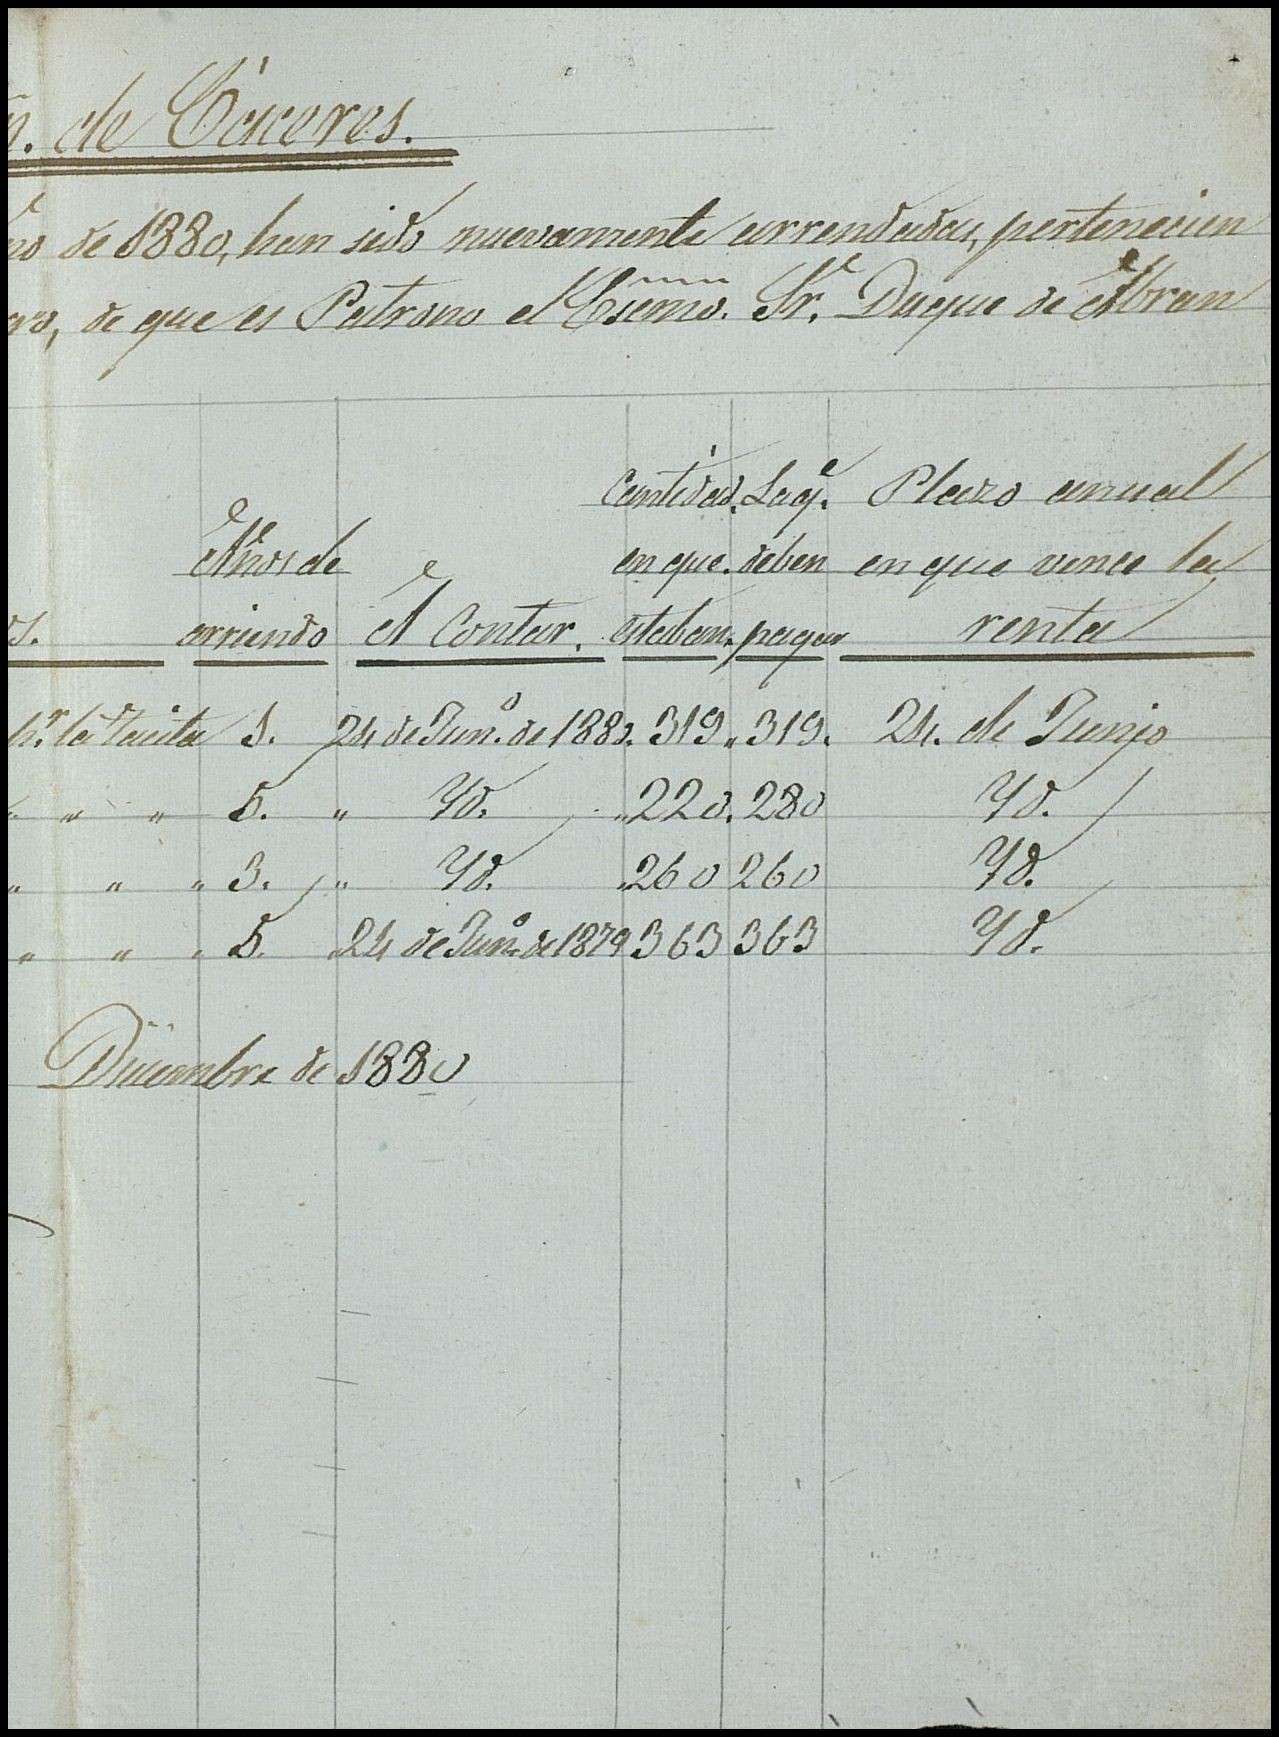 n. de Cáceres.
ño de 1880, han sido nuevamente arrendadas, pertenecien
de que es Patrono el Exemo. Sr. Duque de Abran
Cantidad. La q.e Plazo anual
Años de en que. deben en que vence la
os. arriendo A Contar. estaban. pagar renta
p.r la Tacita 1. 24 de Jun.o de 1880. 319 " 319. 24. de Junio
" " " 5. " Yd. " 220. 280 Yd.
" " " 3. " Yd. " 260 260 Yd.
" " " 5. " 24 de Jun.o de 1879 363 363 Yd.
Diciembre de 1880